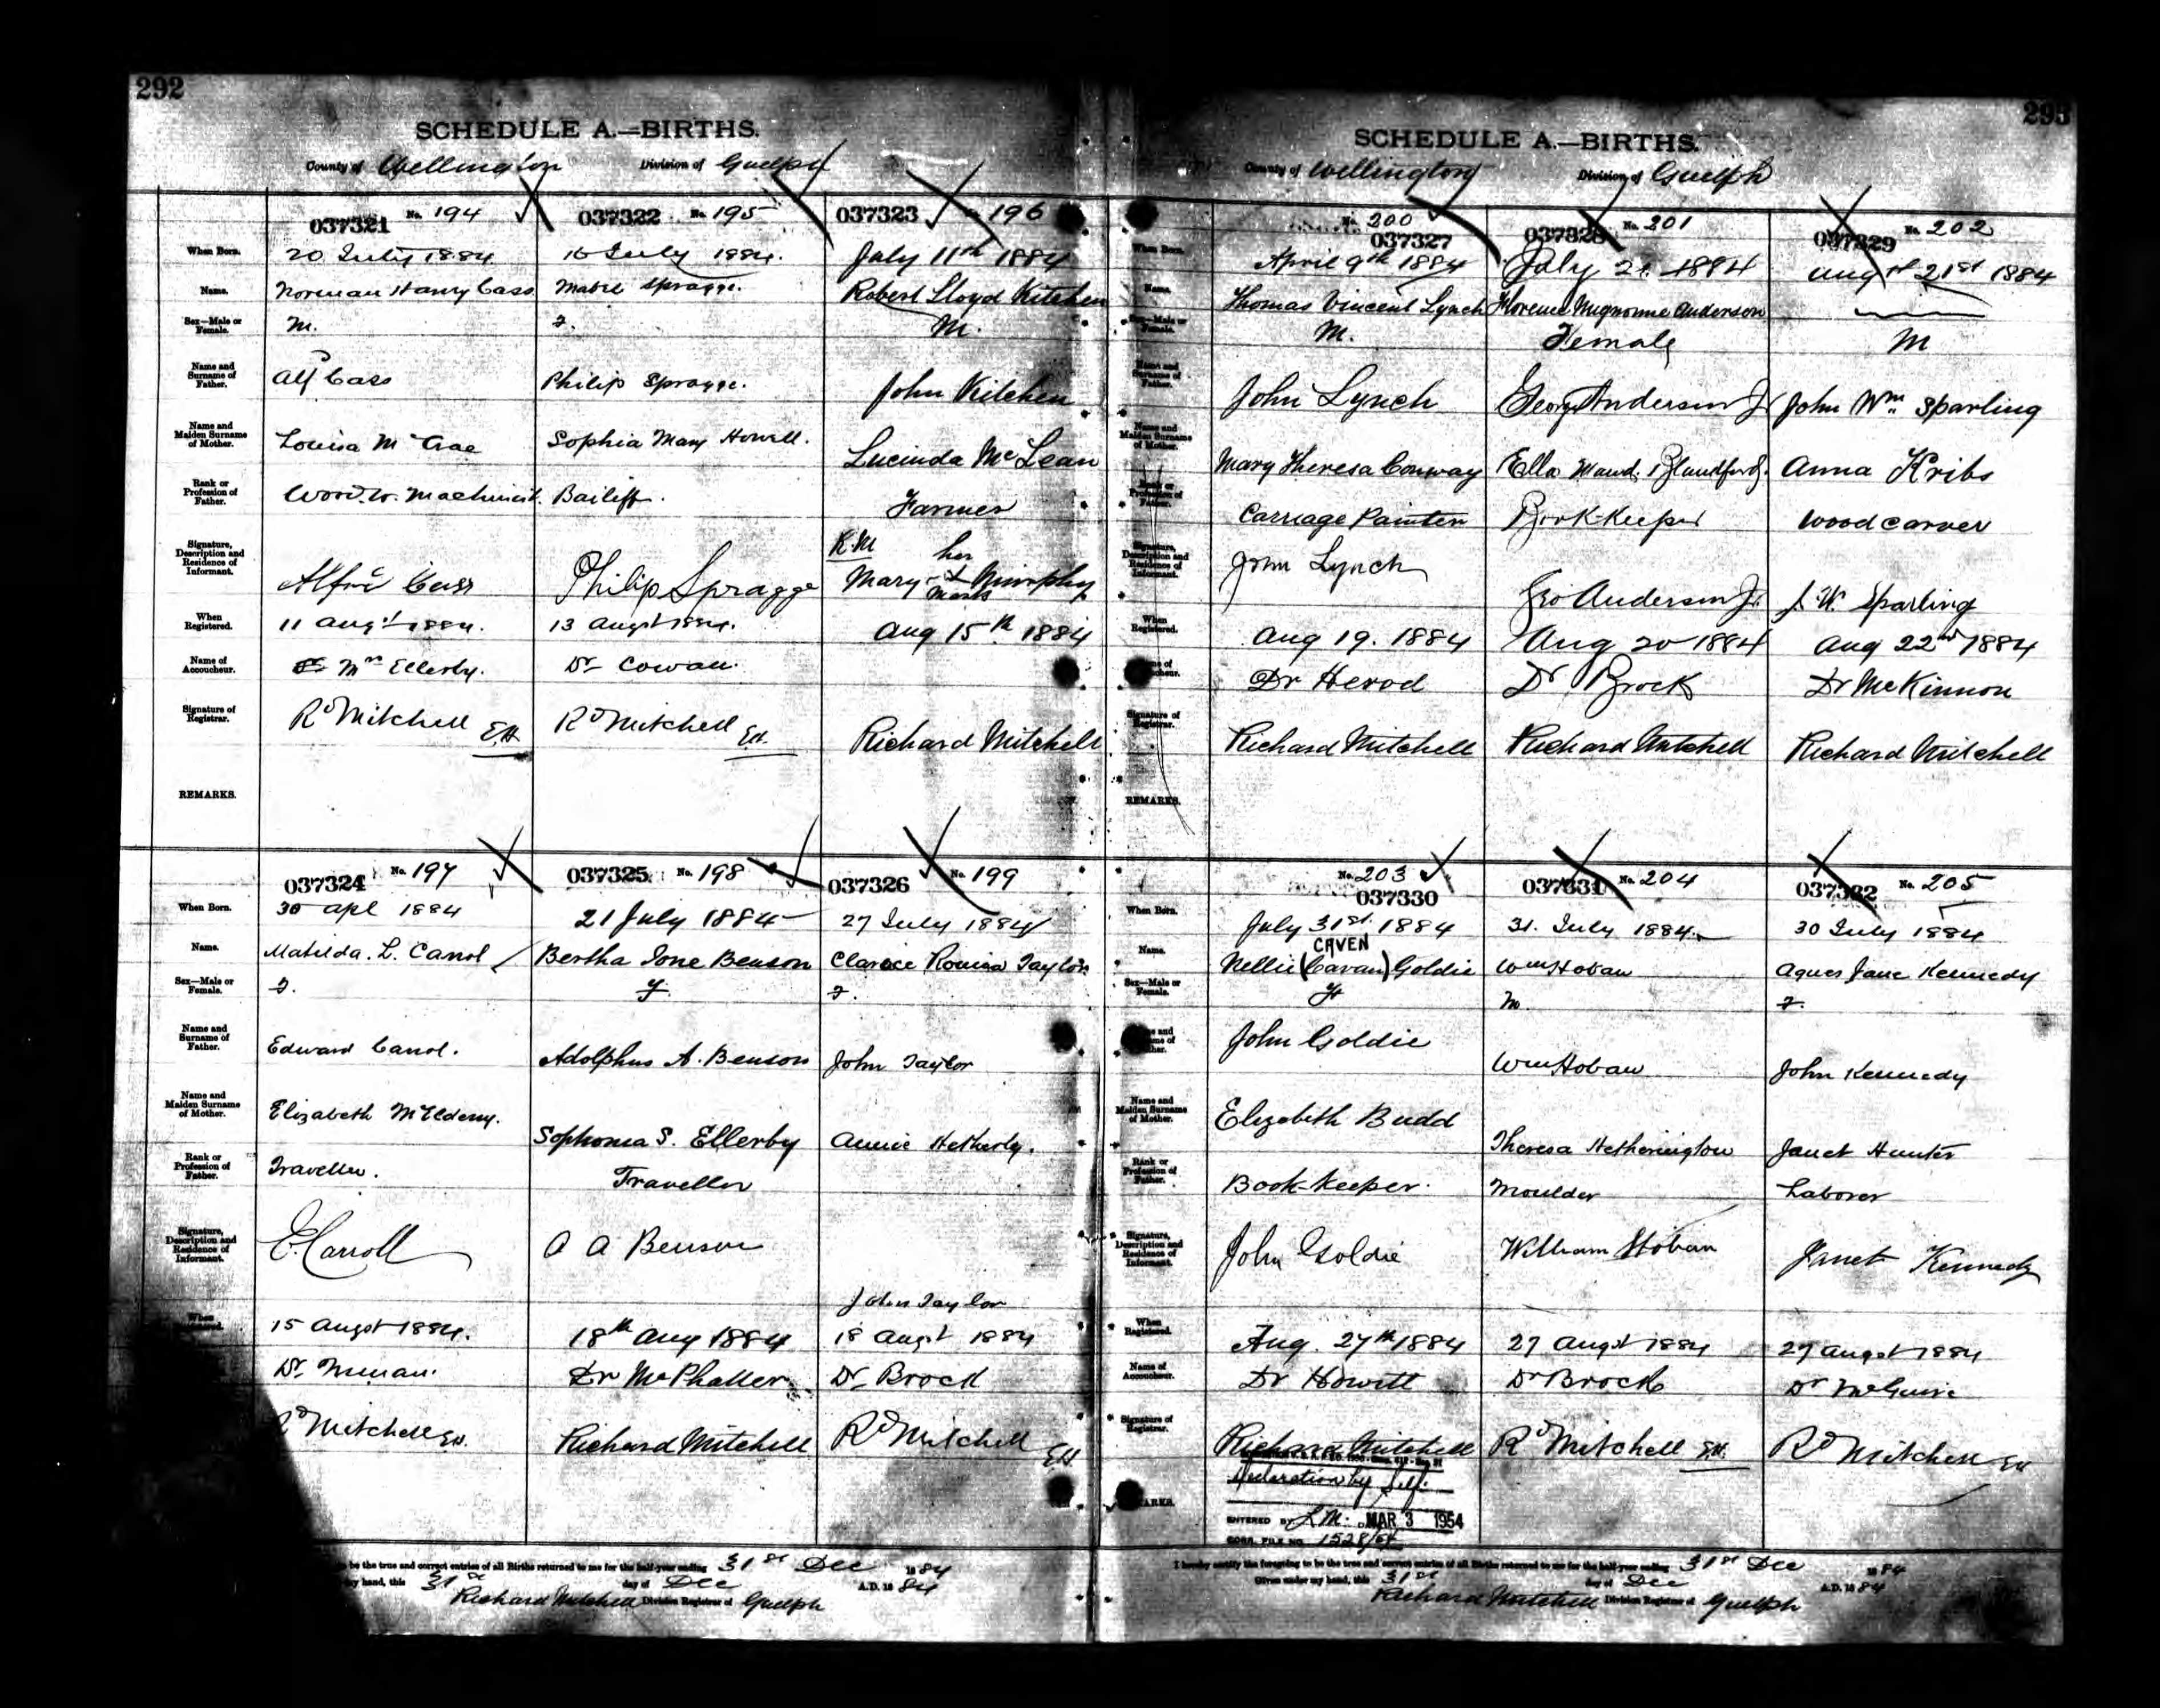 292
SCHEDULE A.—BIRTHS.
County of Wellington Division of Guelph
037321 No. 194
037322 No. 195
037323 196
When Born. 20 July 1884 16 July 1884. July 11th 1884
Name. Norman Harry Cass Mabel Spragge. Robert Lloyd Kitchen
Sex—Male or Female. M. F. M.
Name and Surname of Father. Alf Cass Philip Spragge. John Kitchen
Name and Maiden Surname of Mother. Louisa McCrae Sophia Mary Howell. Lucinda McLean
Rank or Profession of Father. Wood.w. Machinist. Bailiff. Farmer
Signature, Description and Residence of Informant. Alfred Cass Philip Spragge K.M her Mary X Murphy mark
When Registered. 11 Augst 1884. 13 Augst 1884. Aug 15th 1884
Name of Accoucheur. Mrs Ellerby. Dr Cowan. 
Signature of Registrar. Rd Mitchell EH Rd Mitchell EH. Richard Mitchell
REMARKS.
037324 No. 197
037325 No. 198
037326 No. 199
When Born. 30 Apl 1884 21 July 1884 27 July 1884
Name. Matilda. L. Carrol Bertha Ione Benson Clarice Taylor
Sex—Male or Female. F. F F.
Name and Surname of Father. Edward Carrol. Adolphus A. Benson John Taylor
Name and Maiden Surname of Mother. Elizabeth Sophonia S. Ellerby Annie Hetherly.
Rank or Profession of Father. Traveller. Traveller
Signature, Description and Residence of Informant. E. Carroll A A Benson John Taylor
When 15 Augst 1884. 18th Aug 1884 18 Augst 1884
Dr Dr McPhatter Dr Brock
Rd Mitchell EH. Richard Mitchell Rd Mitchell EH
be the true and correct entries of all Births returned to me for the half-year ending 31st Dec 1884
my hand, this 31st day of Dec A.D. 1884
Richard Mitchell Division Registrar of Guelph
293
SCHEDULE A.—BIRTHS.
County of Wellington Division of Guelph
No. 200 037327
037328 No. 201
037329 No. 202
When Born. April 9th 1884 July 21. 1884 Augst 21st 1884
Name. Thomas Vincent Lynch Florence Mignonne Anderson
Sex—Male or Female. M. Female M
Name and Surname of Father. John Lynch George Anderson Jr John Wm Sparling
Name and Maiden Surname of Mother. Mary Theresa Conway Ella Maud Blandford. Anna Kribs
Rank or Profession of Father. Carriage Painter Book-keeper Wood carver
Signature, Description and Residence of Informant. John Lynch Geo Anderson Jr. J. W. Sparling
When Registered. Aug 19. 1884 Aug 20 1884 Aug 22nd 1884
Dr Herod Dr Brock Dr McKinnon
Signature of Registrar. Richard Mitchell Richard Mitchell Richard Mitchell
REMARKS.
No. 203 037330
037331 No. 204
037332 No. 205
When Born. July 31st. 1884 31. July 1884. 30 July 1884
CAVEN
Name. Nellie (Cavan) Goldie Wm Hoban Agnes Jane Kennedy
Sex—Male or Female. F M. F.
John Goldie Wm Hoban John Kennedy
Name and Maiden Surname of Mother. Elizabeth Budd Theresa Hetherington Janet Hunter
Rank or Profession of Father. Book-keeper. Moulder Laborer
Signature, Description and Residence of Informant. John Goldie William Hoban Janet Kennedy
When Registered. Aug. 27th 1884 27 Augst 1884 27 Augst 1884
Name of Accoucheur. Dr Howitt Dr Brock Dr McGuire
Signature of Registrar. Richard Mitchell Rd Mitchell EH. Rd Mitchell EH
Declaration by Self.
ENTERED BY L.M. MAR 3 1954
CORR. FILE NO. 1528/54
I hereby certify the foregoing to be the true and correct entries of all Births returned to me for the half-year ending 31st Dec 1884
Given under my hand, this 31st day of Dec A.D. 1884
Richard Mitchell Division Registrar of Guelph